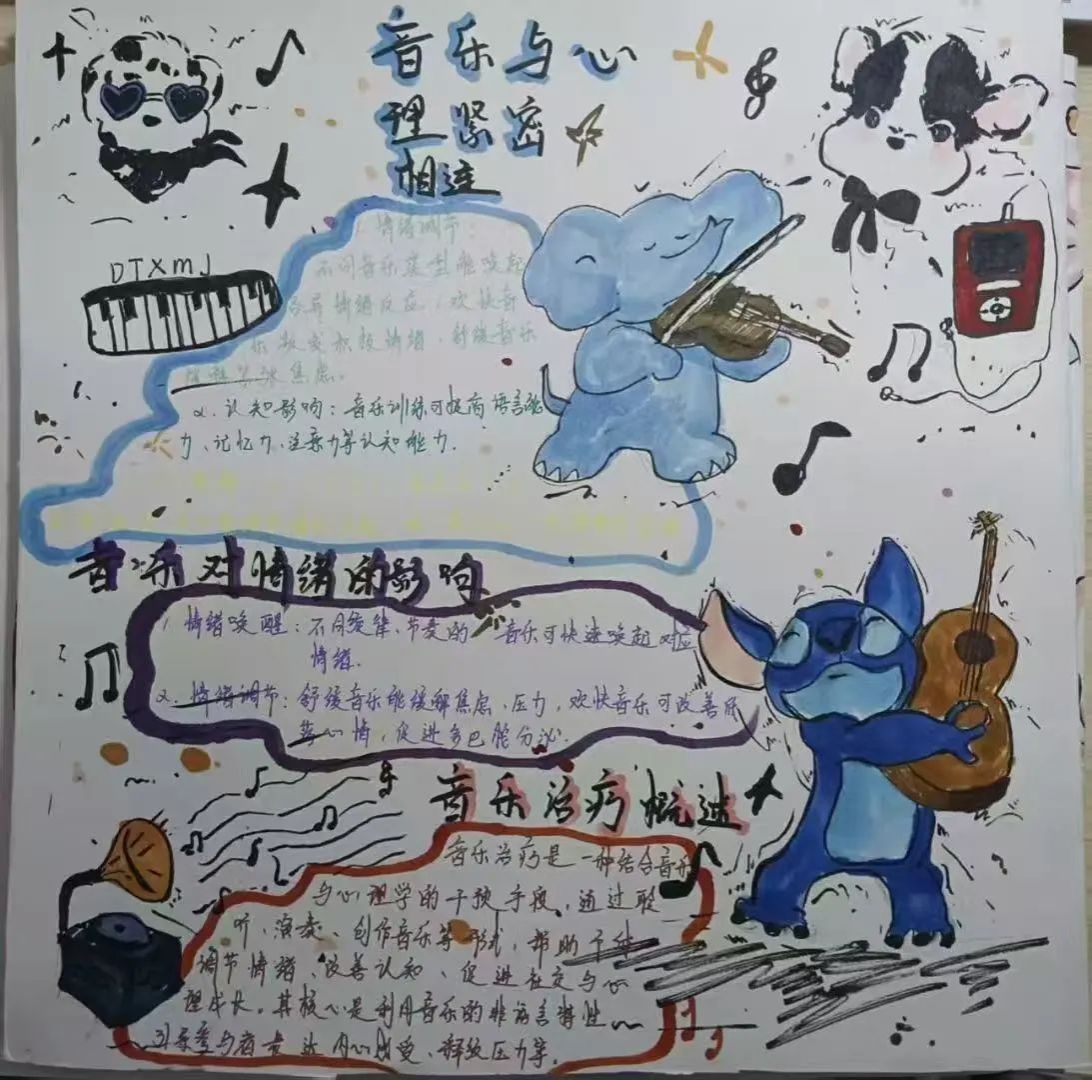 音乐与心
理紧密
相连
DTXmJ
1.情绪调节:
不同音乐类型能唤起
各异情绪反应,欢快音
乐激发积极情绪,舒缓音乐
焦虑.
2.认知影响:音乐训练可提高语言能
力、记忆力、注意力等认知能力.
音乐对情绪的影响
1,情绪唤醒:不同旋律、节奏的音乐可快速唤起对应
情绪.
2.情绪调节:舒缓音乐能缓解焦虑、压力,欢快音乐可改善低
落心情,促进多巴胺分泌.
音乐治疗概述
音乐治疗是一种结合音乐
与心理学的干预手段,通过聆
听、演奏、创作音乐等形式,帮助个体
调节情绪、改善认知、促进社交与心
理成长。其核心是利用音乐的非语言特性
引导参与者表达内心感受、释放压力等.